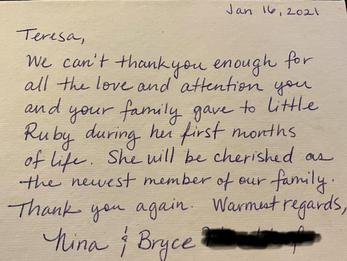 Jan 16, 2021
Teresa,
We can't thank you enough for
all the love and attention you
and your family gave to little
Ruby during her first months
of life. She will be cherished as
the newest member of our family.
Thank you again. Warmest regards,
Nina & Bryce